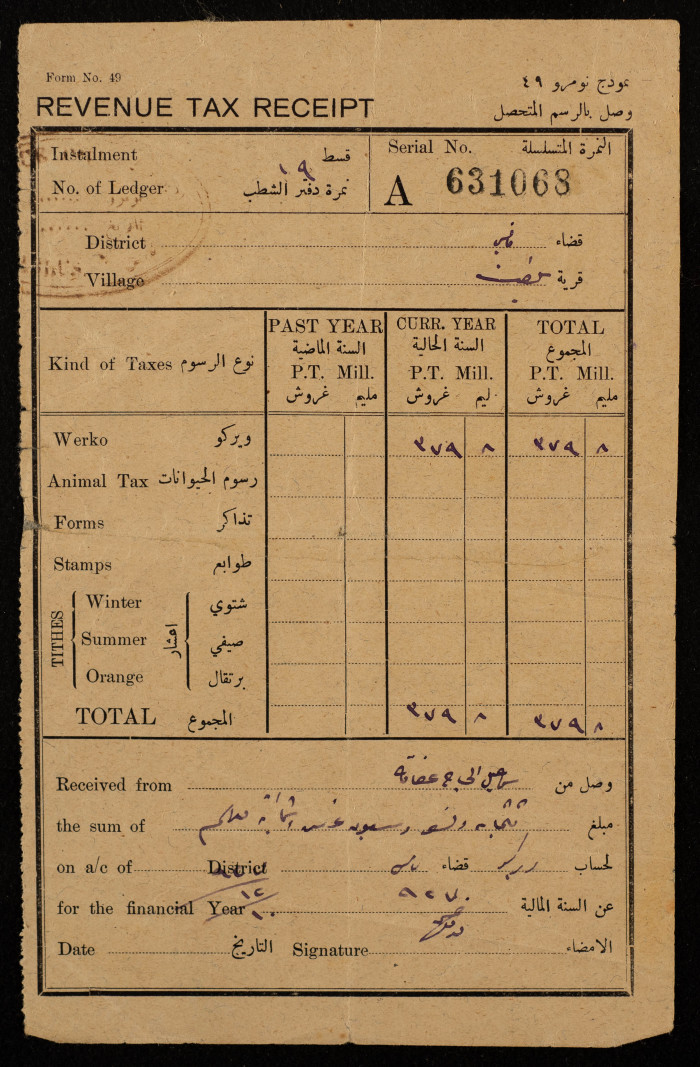 Form No. 49 نموذج نومرو ٤٩
REVENUE TAX RECEIPT وصل بالرسم المتحصل
Instalment قسط
No. of Ledger نمرة دفتر الشطب ١٩
Serial No. النمرة المتسلسلة
A 631068
District قضاء
Village قرية
Kind of Taxes نوع الرسوم
PAST YEAR CURR. YEAR TOTAL
السنة الماضية السنة الحالية المجموع
P.T. Mill. P.T. Mill. P.T. Mill.
غروش مليم غروش ليم غروش مليم
Werko ويركو ٣٧٩ ٨ ٣٧٩ ٨
Animal Tax رسوم الحيوانات
Forms تذاكر
Stamps طوابع
TITHES اعشار
Winter شتوي
Summer صيفي
Orange برتقال
TOTAL المجموع ٣٧٩ ٨ ٣٧٩ ٨
Received from وصل من
the sum of مبلغ
on a/c of District قضاء لحساب
for the financial Year عن السنة المالية
Date التاريخ Signature الامضاء